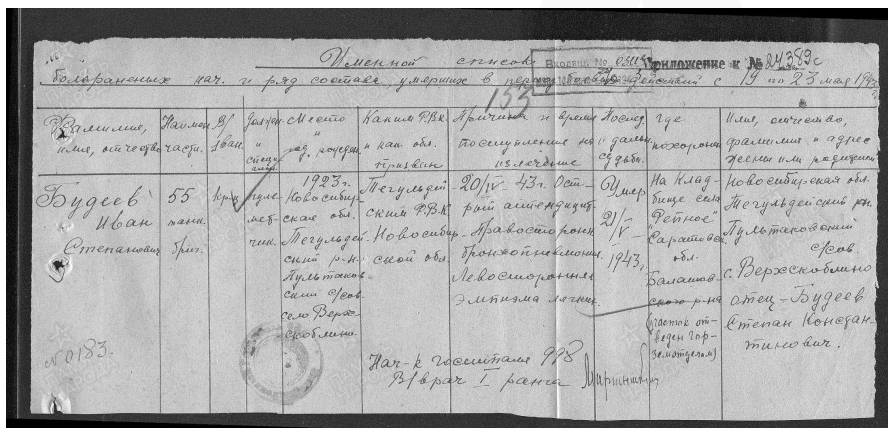 Именной список
Входящ. No 03113
Приложение к № 24389с
больрансных нач. и ряд состава, умерших в период боевых действий с 19 по 23 мая 1943
153
Фамилия,
имя, отчество
Наимен.
части.
В/
зван.
Должн.
и
специ
альн.
Место
и
год рожден.
Каким Р.В.К.
и как. обл.
призван
Причины и время
поступления на
излечение
Послед
и дальн.
судьба.
где
похоронен
Имя, отчество,
фамилия и адрес
жены или родителей
Будеев
Иван
Степанович
55
танк.
бриг.
кр-ц
пуле-
мет-
чик.
1923 г.
Новосибир-
ская обл.
Тегульдет-
ский р-н.
Пультаков-
ский с/сов.
село Верх-
скоблино.
Тегульдет-
ским Р.В.К.
Новосибир-
ской обл.
20/IV 43 г. Ост-
рый аппендицит.
Правосторон.
бронхопневмония
Левосторонняя
эмпиема легких.
Умер
21/V
1943 г.
На клад-
бище села
"Репное"
Саратовск.
обл.
Балашов-
ского р-на
(участок от-
веден гор-
земотделом)
Новосибирская обл.
Тегульдетский рн.
Пультаковский
с/сов.
с. Верхскоблино
отец - Будеев
Степан Констан-
тинович.
№0183.
Нач-к госпиталя 998
В/врач I ранга